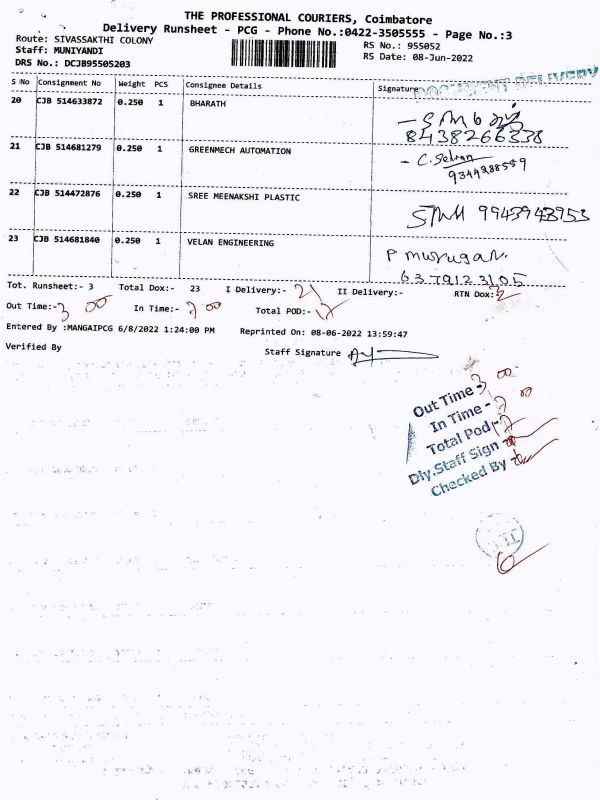 THE PROFESSIONAL COURIERS, Coimbatore
Delivery Runsheet - PCG - Phone No.:0422-3505555 - Page No.:3
Route: SIVASSAKTHI COLONY
Staff: MUNIYANDI
DRS No.: DCJB95505203
RS No.: 955052
RS Date: 08-Jun-2022
S No Consignment No Weight PCS Consignee Details Signature
DOCUMENT DELIVERY
20 CJB 514633872 0.250 1 BHARATH
8438266338
21 CJB 514681279 0.250 1 GREENMECH AUTOMATION
- C. Selvan
9344288559
22 CJB 514472876 0.250 1 SREE MEENAKSHI PLASTIC
9943948953
23 CJB 514681840 0.250 1 VELAN ENGINEERING
P murugan.
6379123105
Tot. Runsheet:- 3 Total Dox:- 23 I Delivery:- 21 II Delivery:- RTN Dox:-
Out Time:- 3 00 In Time:- 7 00 Total POD:- 17
Entered By :MANGAIPCG 6/8/2022 1:24:00 PM Reprinted On: 08-06-2022 13:59:47
Verified By Staff Signature
Out Time - 3 00
In Time - 7 00
Total Pod - 17
Dly.Staff Sign
Checked By